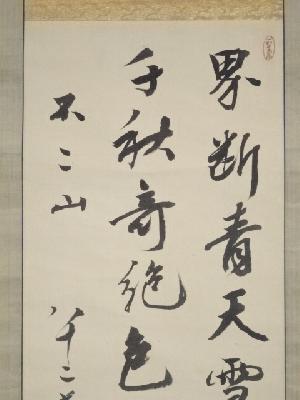 界断青天雪
千秋奇絶色
不二山
八十二